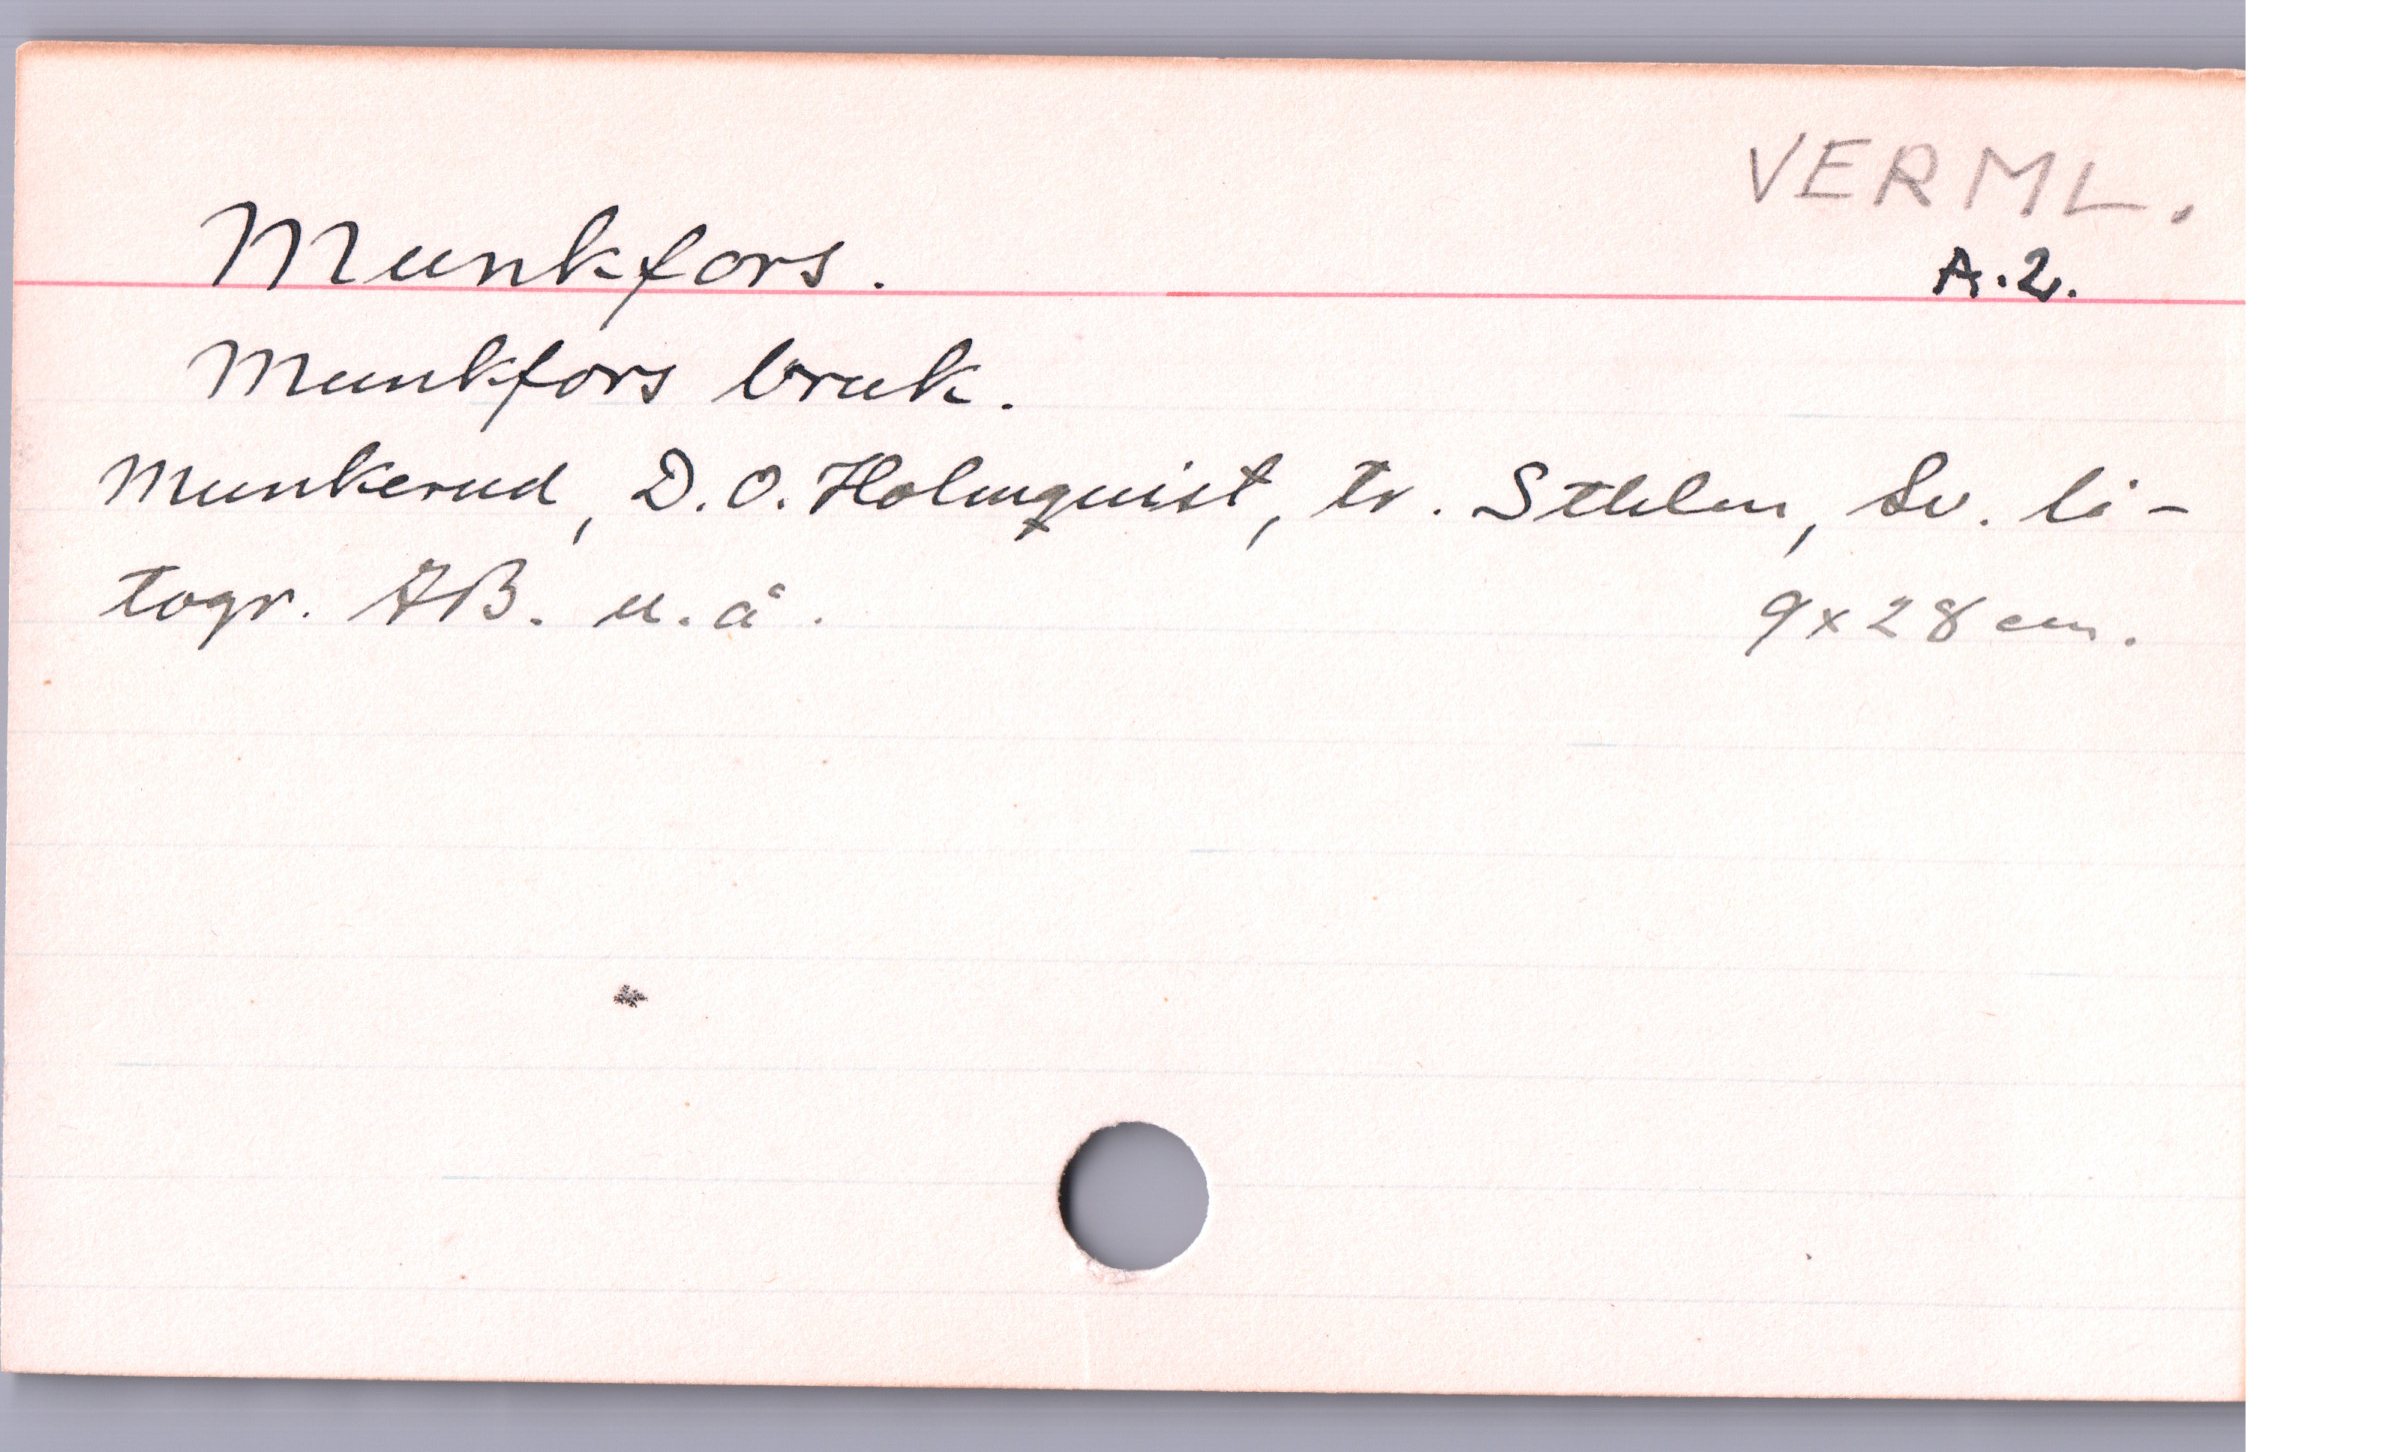 VERML.
Munkfors.
A.2.
Munkfors bruk.
Munkerud, D.O. Holmquist, tr. Sthlm, Sv. li-
togr. AB. u.å.
9x28 cm.